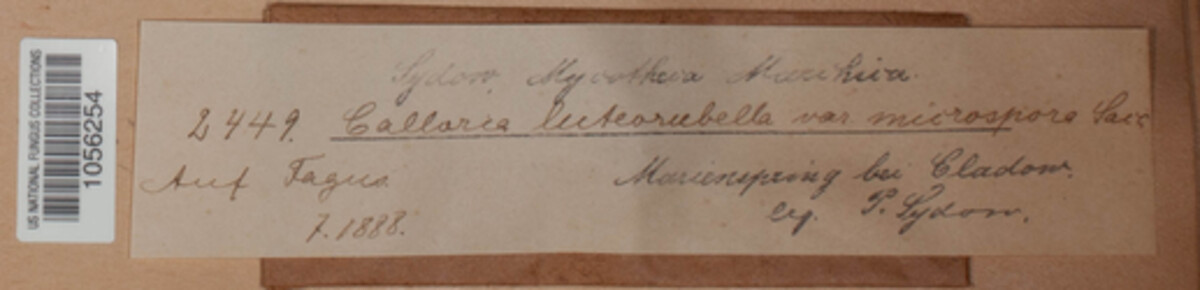 US NATIONAL FUNGUS COLLECTIONS
1056254
Sydow, Mycotheca Marchica.
2449. Calloria luteorubella var microspora Sacc
Auf Fagus
Marienspring bei Cladow.
7.1888.
leg. P. Sydow.